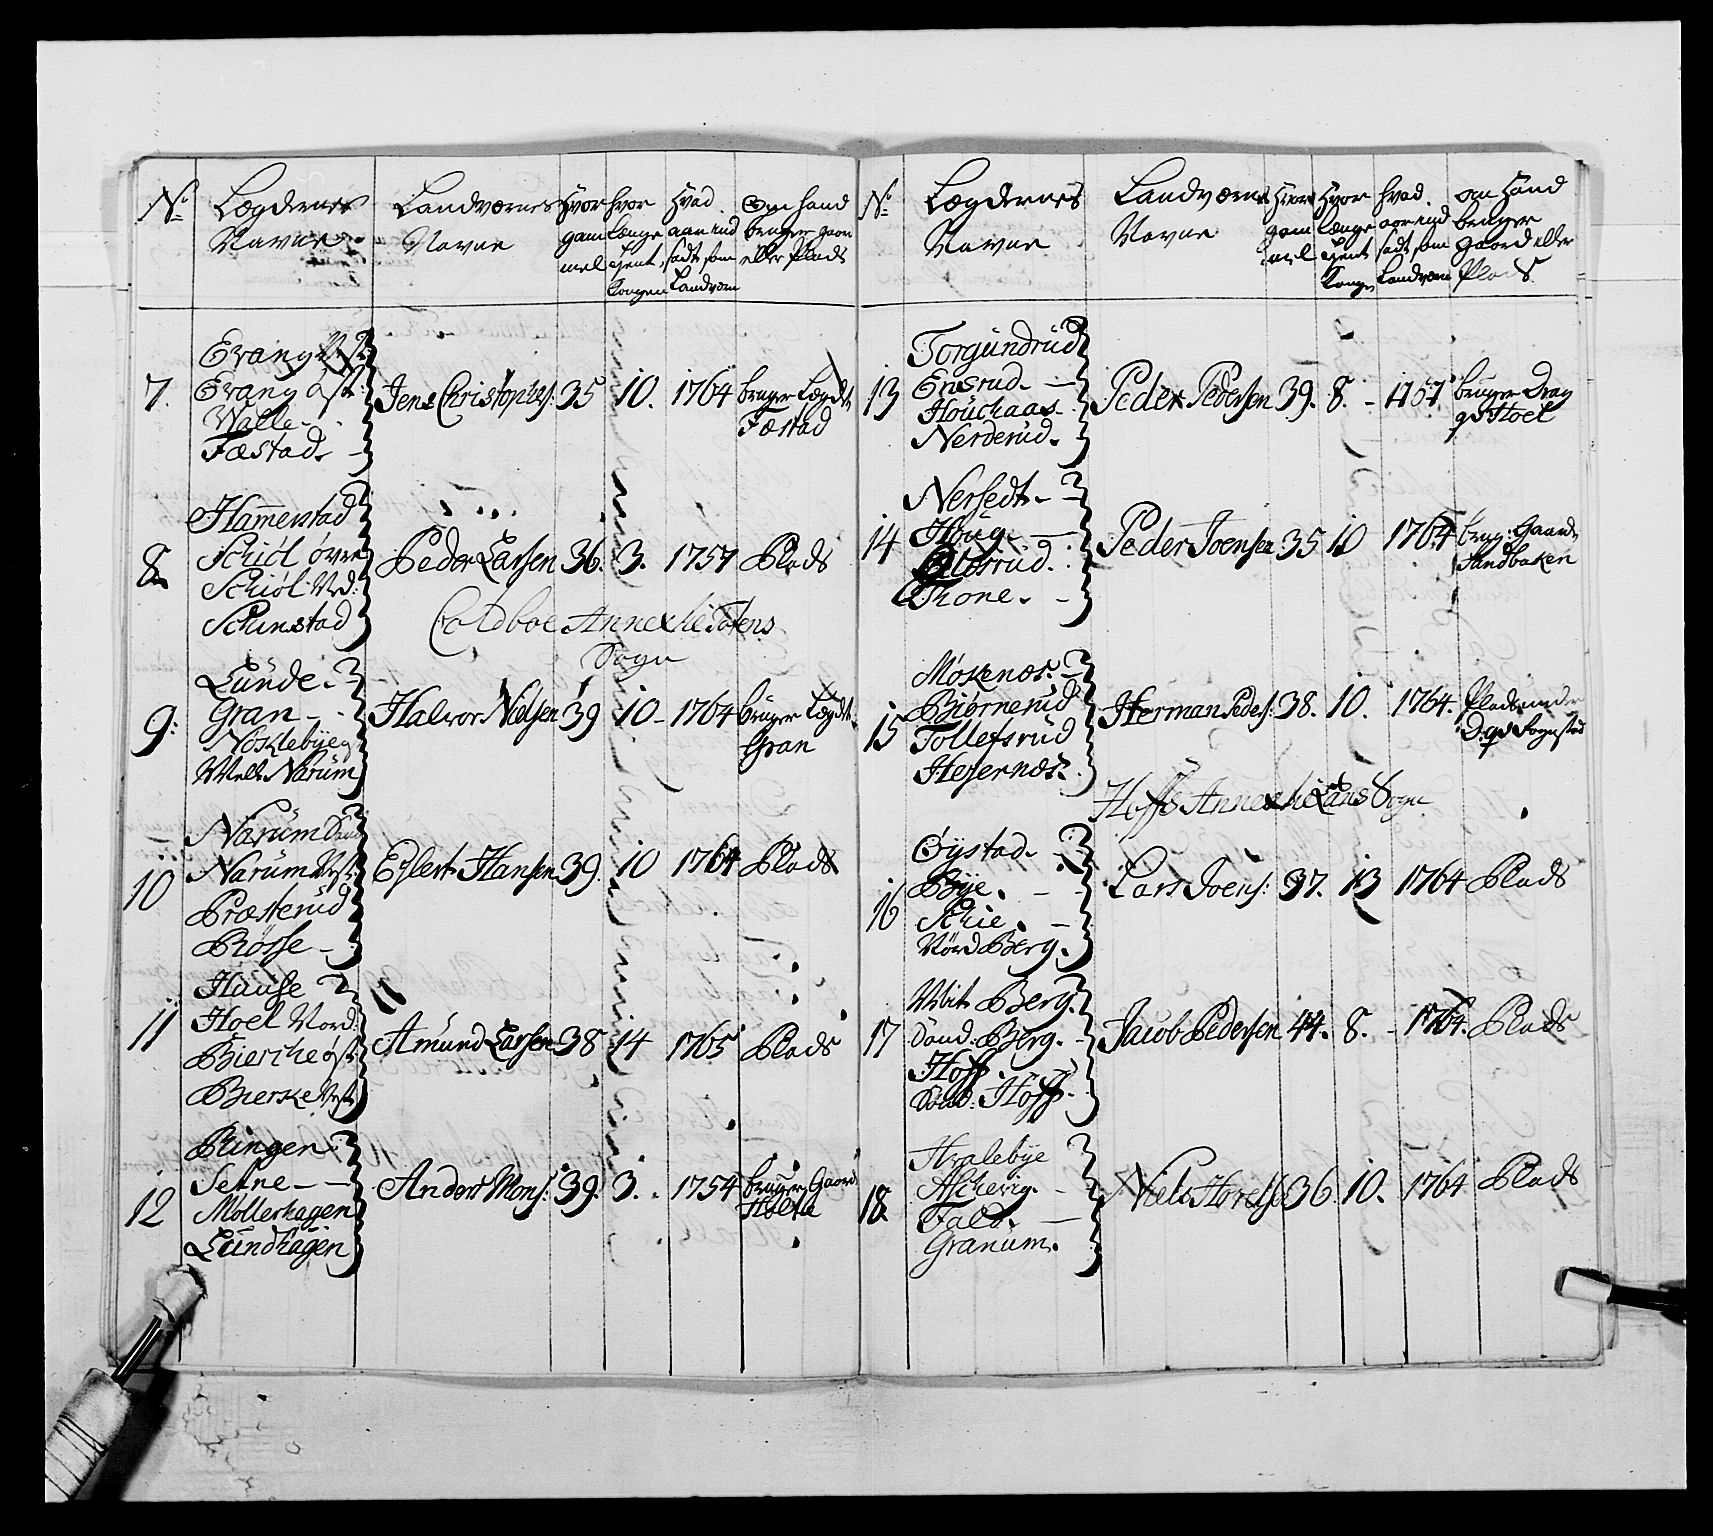 No
Lægdernes
Navne
Landværnes
Navne
Hvor
gam
mel
hvor
længe
tient
Kongen
Hvad
aar ind
sadt som
Landværn
Om hand
bruger gaar
eller Plads
7.
Evang Vest:
Evang øst:
Walle.
Fæstad.
Jens Christophers: 35 10. 1764 bruger Lægdet
Fæstad
8.
Hamerstad
Schiøl øvre
Schiøl Ned:
Schinstad
Peder Larsen 36. 3. 1757 Plads
Coldboe Annex til Totens
Sogn
9.
Lunde.
Gran
Noklebye
Mell. Narum
Halvor Nielsen 39 10 - 1764 bruger Lægdet
Gran
10
Narum
Narum Vest:
Præsterud
Bøsse
Eglert Hansen 39. 10 1764 Plads
11
Hausse
Hoel Nord:
Bierche øst:
Bierske Vest:
Amund Larsen 38 14 1765 Plads
12
Ringen
Setne
Møllerhagen
Lundhagen
Anders Mons: 39. 3. 1754 bruger Gaard
No
Lægdernes
Navne
Landværnes
Navne
Hvor
gam
mel
Hvor
længe
tient
Konge
hvad
aar ind
sadt som
Landværn
om Hand
bruger
gaard eller
Plads
13
Torgundrud
Ensrud.
Houchaas.
Nerderud.
Peder Pedersen 39. 8. - 1757 bruger
Hoel
14
Nersedt.
Houg.
Eldsrud.
Thone.
Peder Joensen 35 10 1764 brug: Gaard
Sandbaken
15
Møkenæs.
Biørnerud
Tollefsrud
Hesernæs.
Herman Peders: 38. 10. 1764. Plads under
Sognstad
Hoffs Annex til Lans Sogn
16
Øystad.
Bye.
Schie.
Nørd Berg.
Lars Joens: 37. 13 1764 Plads
17
Mit Berg.
Berg.
Hoff.
Hoff.
Jacob Pedersen 44. 8. - 1764. Plads
18.
Hvalebye
Alchevig.
Fald.
Granum.
Niels 36. 10. 1764 Plads